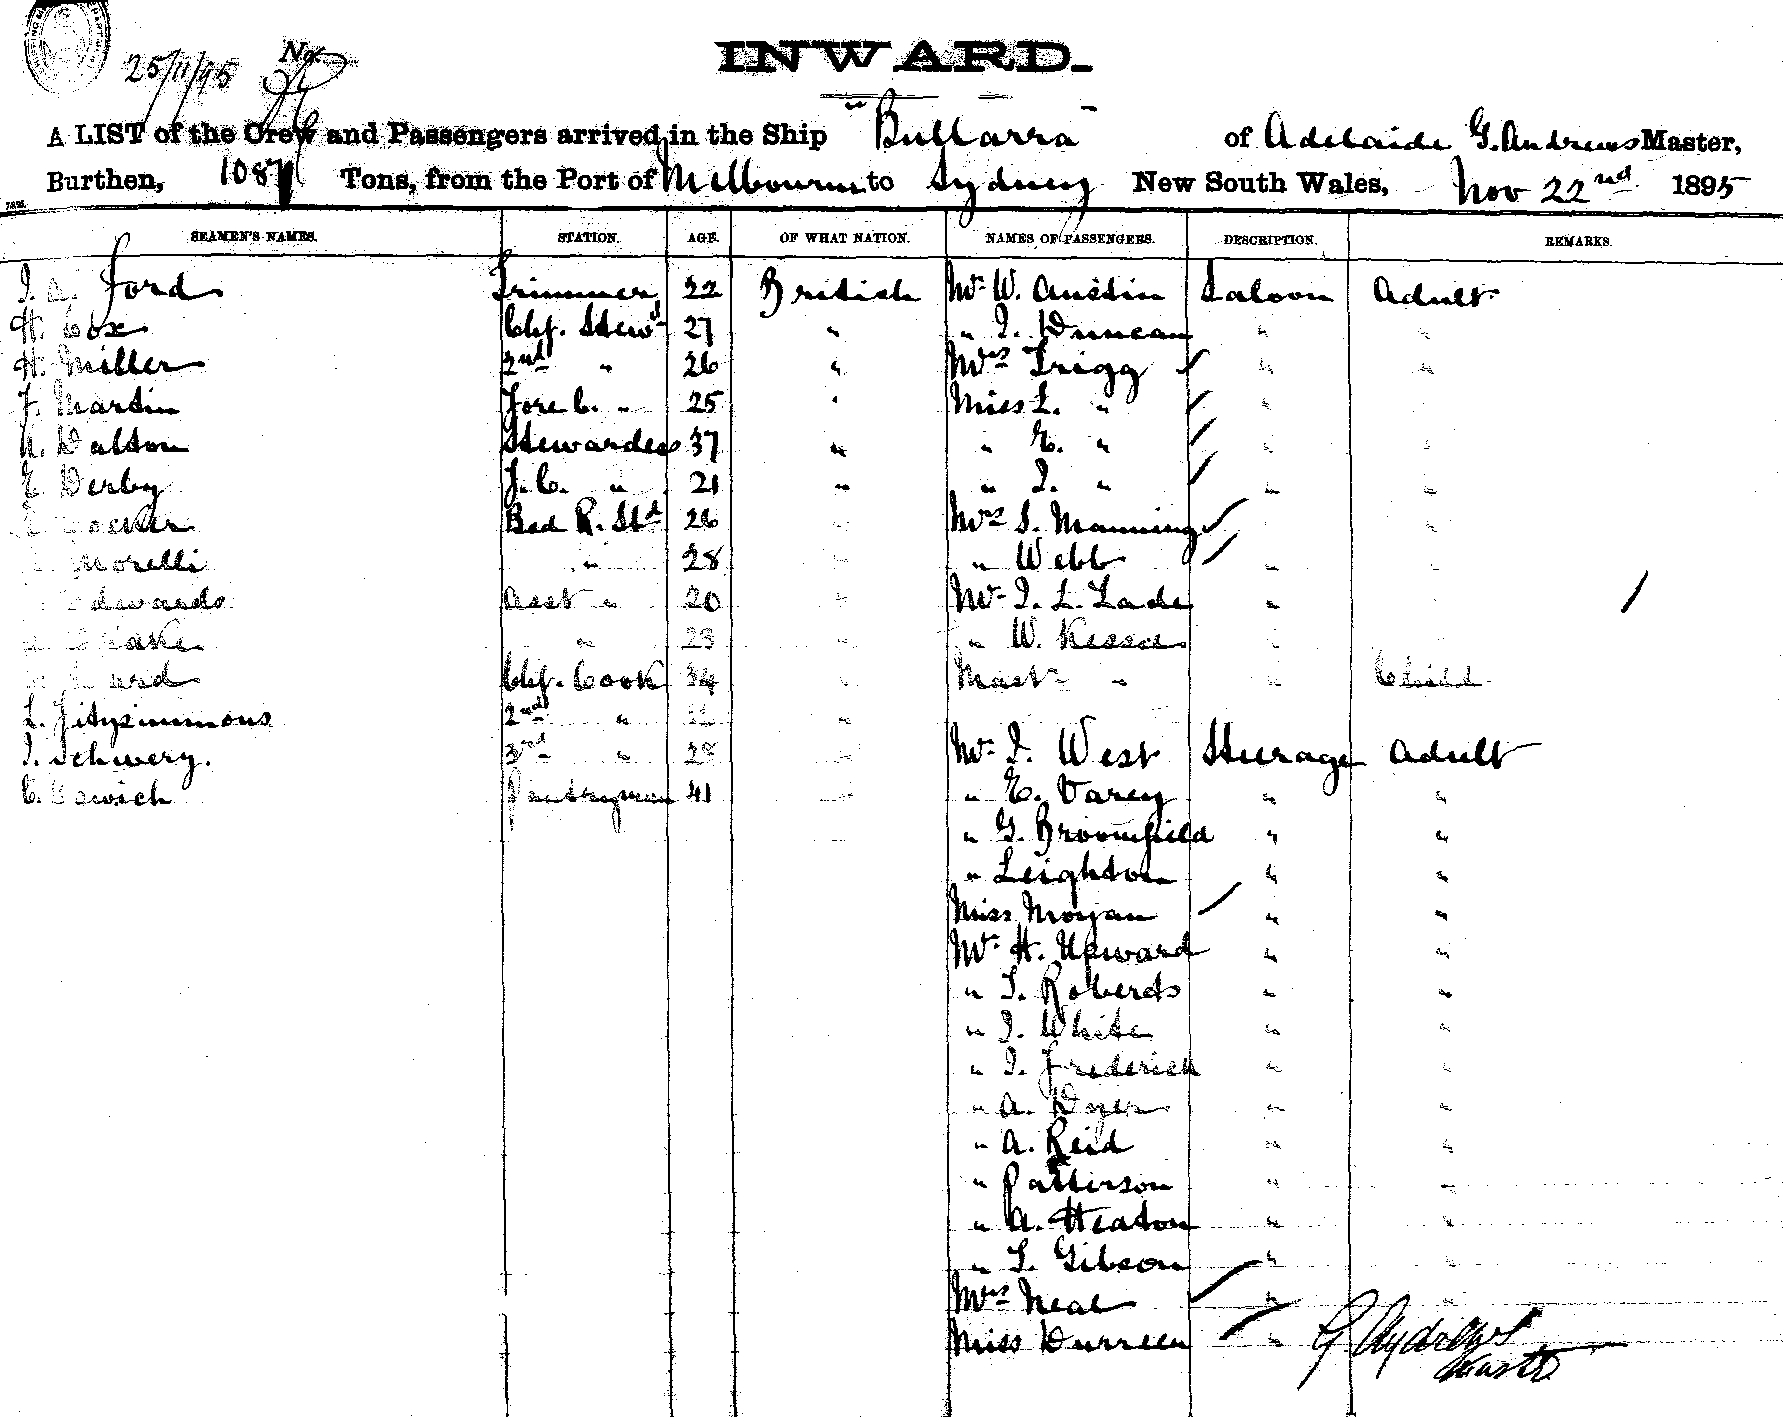 25/11/95 No
INWARD.
A LIST of the Crew and Passengers arrived in the Ship "Bullarra" of Adelaide G. Andrews Master,
Burthen, 108 Tons, from the Port of Melbourne to Sydney New South Wales, Nov 22nd 1895
SEAMEN'S NAMES. STATION. AGE. OF WHAT NATION. NAMES OF PASSENGERS. DESCRIPTION. REMARKS.
Ford Trimmer 22 British Mr W. Austin Saloon Adult
H. Cox Chf. Stewd 27 " " J. Duncan " "
H. Miller 2nd " 26 " Mrs Trigg " "
F. Martin Fore C. " 25 " Miss L. " " "
A. Dalton Stewardess 37 " " E. " " "
E. Derby F.C. " 21 " " I. " " "
Bed R. Std 26 " Mrs S. Manning " "
Morelli " 28 " " Webb " "
Edwards Asst " 20 " Mr J. L. Lade " "
" 23 " " W. " "
Chf. Cook 34 " Mastr " " Child
L. Fitzsimmons 2nd " "
J. Schwery. 3rd " 28 " Mr J. West Steerage Adult
C. Pantryman 41 " " E. Varey " "
" G. Broomfield " "
" Leighton " "
Miss Morgan " "
Mr H. Upward " "
" T. Roberts " "
" J. White " "
" J. Frederick " "
" A. Dyer " "
" A. Reid " "
" Patterson " "
" A. Heaton " "
" T. Gibson " "
Mrs Neal " "
Miss Durreen "
G Andrews
Master